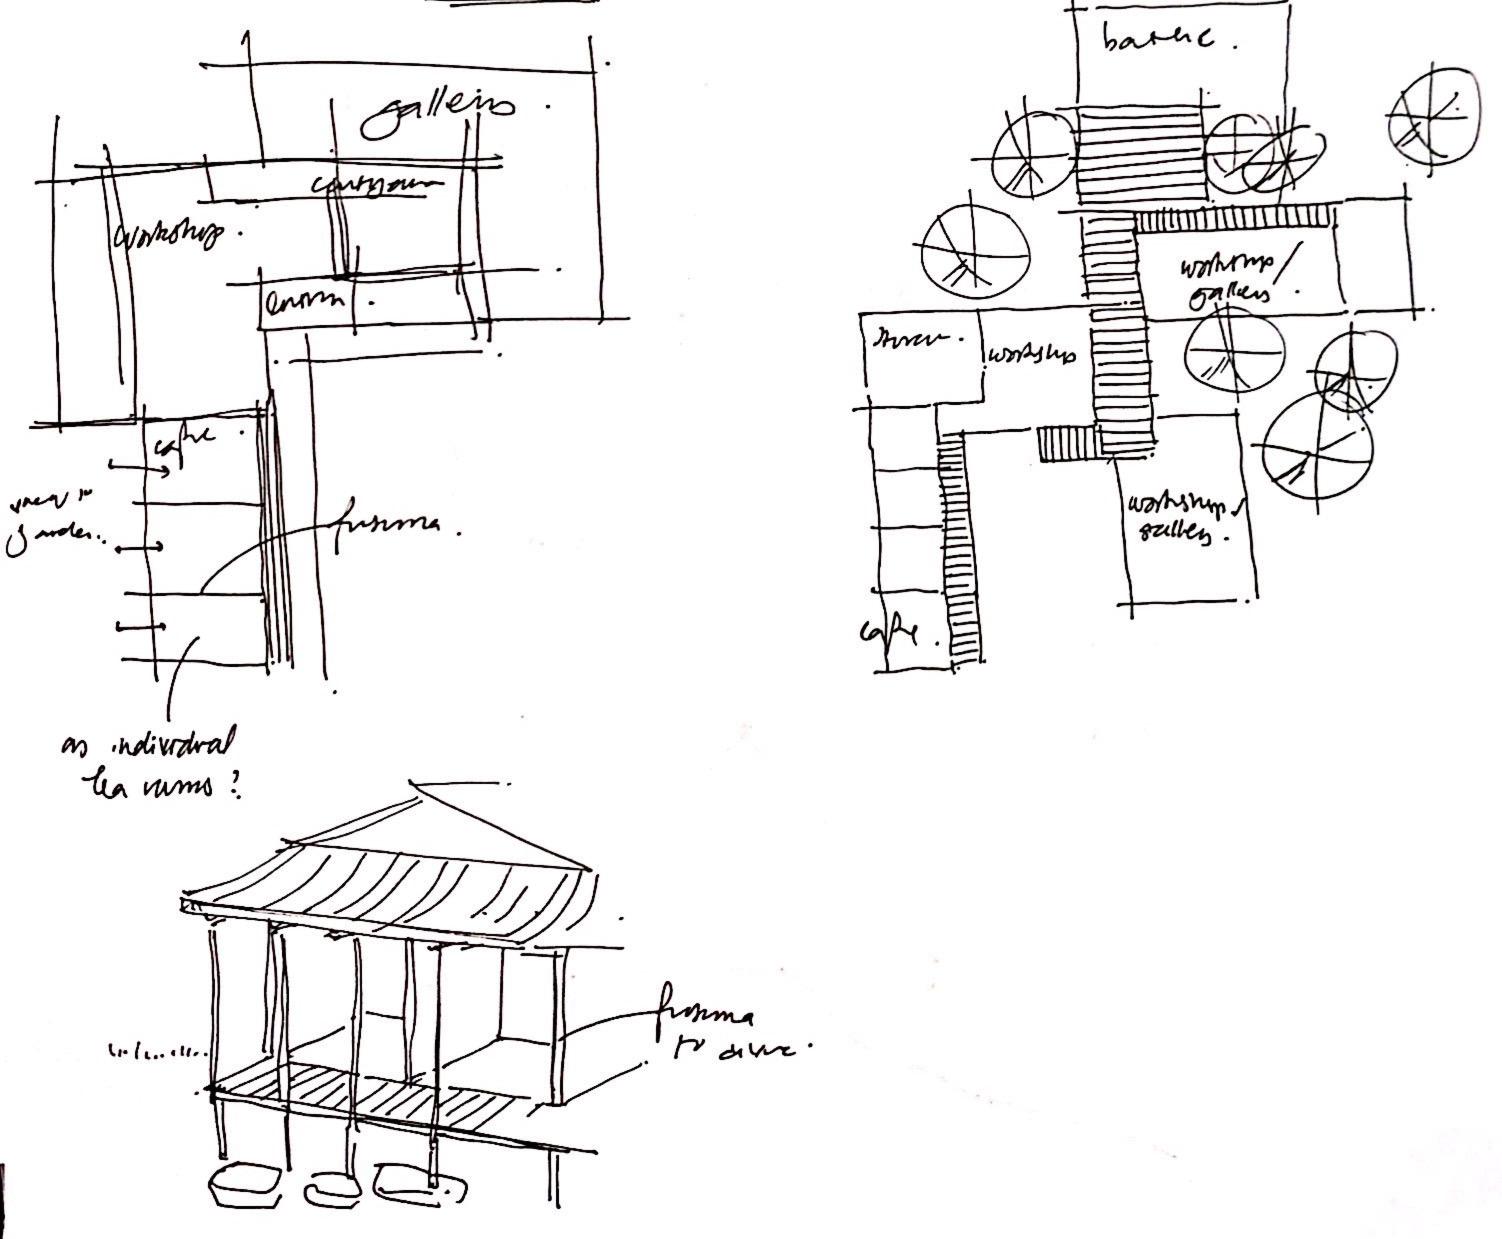 gallery.
courtyard
workshop.
cafe.
view to
garden..
fusuma.
as individual
tea rooms?
fusuma
to divide.
workshop/
gallery.
workshop
workshop/
gallery.
cafe.